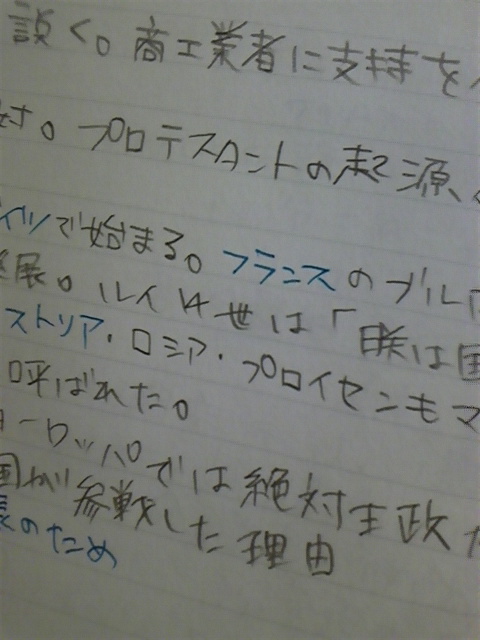 説く。商工業者に支持を
対。プロテスタントの起源
イツで始まる。フランスのブルボ
展。ルイ14世は「朕は国
ストリア・ロシア・プロイセンもマ
呼ばれた。
ーロッパでは絶対王政
国が参戦した理由
のため